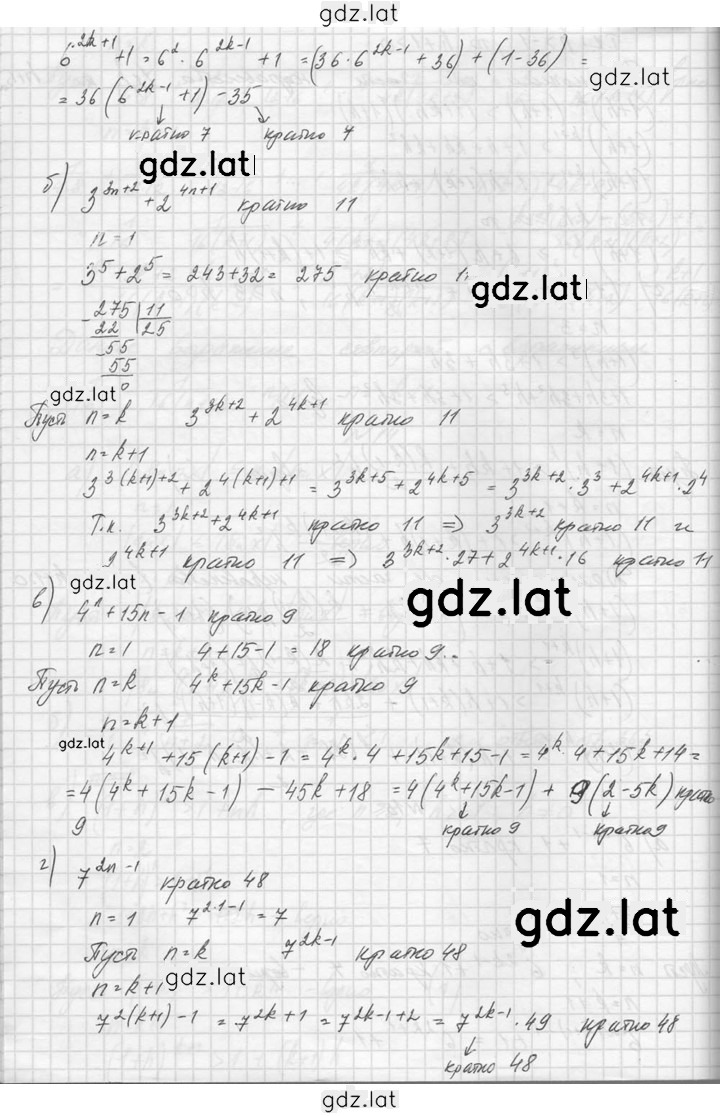 gdz.lat
6^{2k+1} + 1 = 6^2 · 6^{2k-1} + 1 = (36 · 6^{2k-1} + 36) + (1 - 36) =
gdz.lat
= 36(6^{2k-1} + 1) - 35
кратно 7 кратно 7
gdz.lat
б) 3^{3n+2} + 2^{4n+1} кратно 11
n = 1
3^5 + 2^5 = 243 + 32 = 275 кратно 1
gdz.lat
275 | 11
22 | 25
55
55
0
gdz.lat
Пусть n = k 3^{3k+2} + 2^{4k+1} кратно 11
n = k + 1
3^{3(k+1)+2} + 2^{4(k+1)+1} = 3^{3k+5} + 2^{4k+5} = 3^{3k+2} · 3^3 + 2^{4k+1} · 2^4
Т.к. 3^{3k+2} + 2^{4k+1} кратно 11 => 3^{3k+2} кратно 11 и
2^{4k+1} кратно 11 => 3^{3k+2} · 27 + 2^{4k+1} · 16 кратно 11
gdz.lat
gdz.lat
в) 4^n + 15n - 1 кратно 9
n = 1 4 + 15 - 1 = 18 кратно 9..
Пусть n = k 4^k + 15k - 1 кратно 9
n = k + 1
gdz.lat
4^{k+1} + 15(k+1) - 1 = 4^k · 4 + 15k + 15 - 1 = 4^k · 4 + 15k + 14 =
= 4(4^k + 15k - 1) - 45k + 18 = 4(4^k + 15k - 1) + 9(2 - 5k) кратно
9 кратно 9 кратно 9
г) 7^{2n-1} кратно 48
n = 1 7^{2·1-1} = 7
gdz.lat
Пусть n = k 7^{2k-1} кратно 48
n = k + 1
gdz.lat
7^{2(k+1)-1} = 7^{2k+1} = 7^{2k-1+2} = 7^{2k-1} · 49 кратно 48
кратно 48
gdz.lat